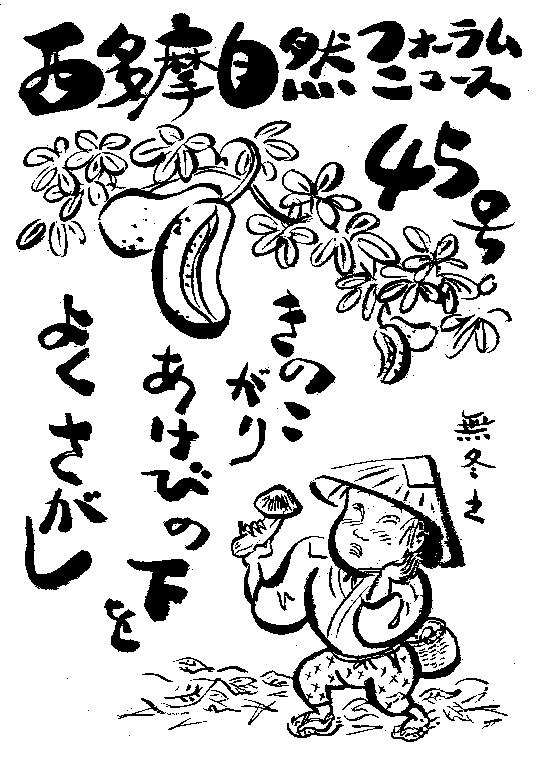 西多摩自然フォーラム
ニュース
45号
きのこ
がり
あけびの下を
よくさがし